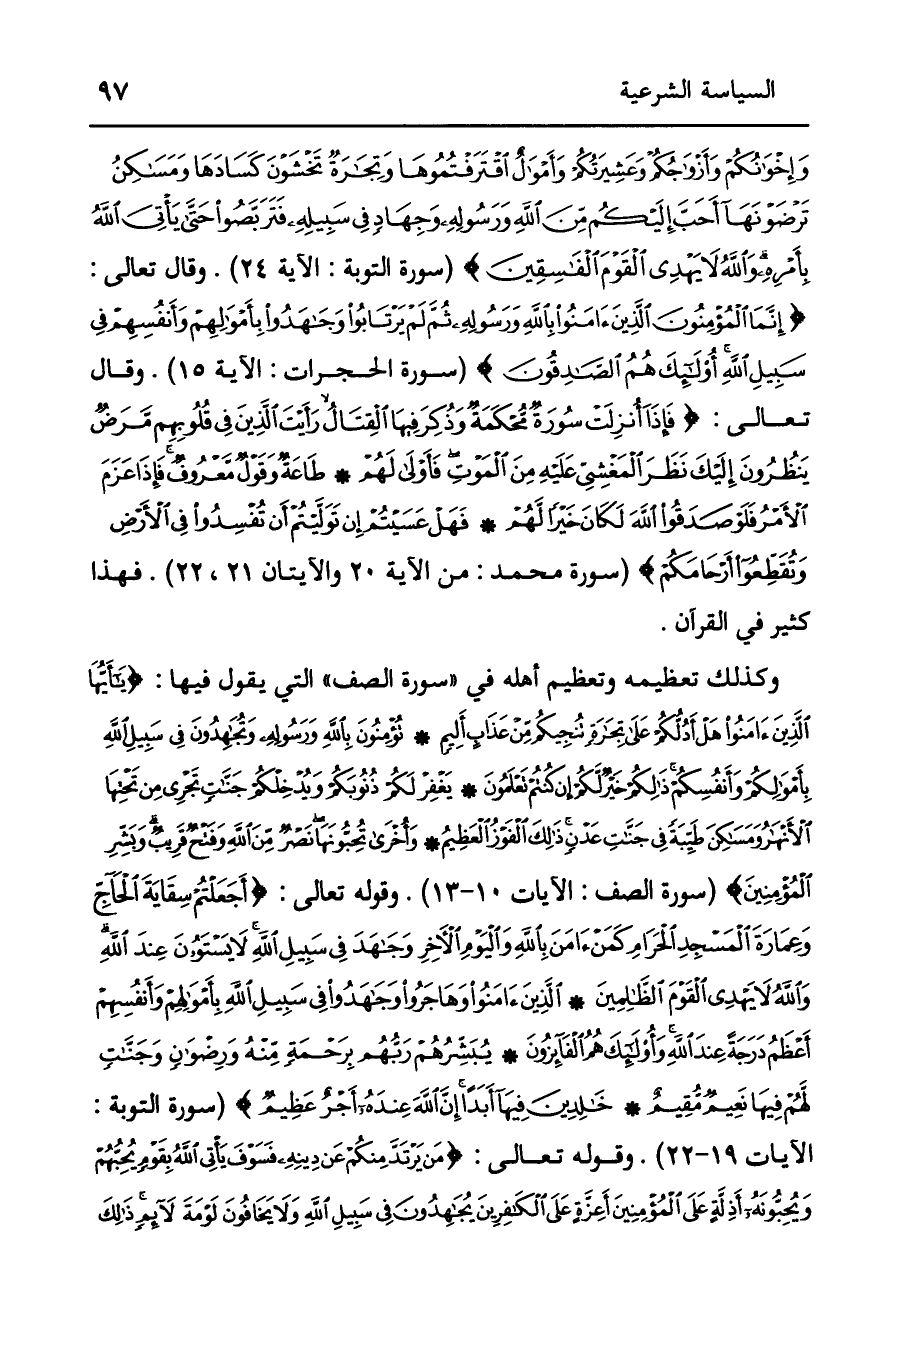 السياسة الشرعية ٩٧
وَإِخْوَٰنُكُمْ وَأَزْوَٰجُكُمْ وَعَشِيرَتُكُمْ وَأَمْوَٰلٌ ٱقْتَرَفْتُمُوهَا وَتِجَٰرَةٌ تَخْشَوْنَ كَسَادَهَا وَمَسَٰكِنُ
تَرْضَوْنَهَآ أَحَبَّ إِلَيْكُم مِّنَ ٱللَّهِ وَرَسُولِهِۦ وَجِهَادٍ فِى سَبِيلِهِۦ فَتَرَبَّصُوا۟ حَتَّىٰ يَأْتِىَ ٱللَّهُ
بِأَمْرِهِۦۗ وَٱللَّهُ لَا يَهْدِى ٱلْقَوْمَ ٱلْفَٰسِقِينَ ﴾ (سورة التوبة : الآية ٢٤) . وقال تعالى :
﴿ إِنَّمَا ٱلْمُؤْمِنُونَ ٱلَّذِينَ ءَامَنُوا۟ بِٱللَّهِ وَرَسُولِهِۦ ثُمَّ لَمْ يَرْتَابُوا۟ وَجَٰهَدُوا۟ بِأَمْوَٰلِهِمْ وَأَنفُسِهِمْ فِى
سَبِيلِ ٱللَّهِۚ أُو۟لَٰٓئِكَ هُمُ ٱلصَّٰدِقُونَ ﴾ (سورة الحجرات : الآية ١٥) . وقال
تعالى : ﴿ فَإِذَآ أُنزِلَتْ سُورَةٌ مُّحْكَمَةٌ وَذُكِرَ فِيهَا ٱلْقِتَالُۙ رَأَيْتَ ٱلَّذِينَ فِى قُلُوبِهِم مَّرَضٌ
يَنظُرُونَ إِلَيْكَ نَظَرَ ٱلْمَغْشِىِّ عَلَيْهِ مِنَ ٱلْمَوْتِۖ فَأَوْلَىٰ لَهُمْ * طَاعَةٌ وَقَوْلٌ مَّعْرُوفٌۚ فَإِذَا عَزَمَ
ٱلْأَمْرُ فَلَوْ صَدَقُوا۟ ٱللَّهَ لَكَانَ خَيْرًا لَّهُمْ * فَهَلْ عَسَيْتُمْ إِن تَوَلَّيْتُمْ أَن تُفْسِدُوا۟ فِى ٱلْأَرْضِ
وَتُقَطِّعُوٓا۟ أَرْحَامَكُمْ ﴾ (سورة محمد : من الآية ٢٠ والآيتان ٢١ ، ٢٢) . فهذا
كثير في القرآن .
وكذلك تعظيمه وتعظيم أهله في «سورة الصف» التي يقول فيها : ﴿يَٰٓأَيُّهَا
ٱلَّذِينَ ءَامَنُوا۟ هَلْ أَدُلُّكُمْ عَلَىٰ تِجَٰرَةٍ تُنجِيكُم مِّنْ عَذَابٍ أَلِيمٍ * تُؤْمِنُونَ بِٱللَّهِ وَرَسُولِهِۦ وَتُجَٰهِدُونَ فِى سَبِيلِ ٱللَّهِ
بِأَمْوَٰلِكُمْ وَأَنفُسِكُمْۚ ذَٰلِكُمْ خَيْرٌ لَّكُمْ إِن كُنتُمْ تَعْلَمُونَ * يَغْفِرْ لَكُمْ ذُنُوبَكُمْ وَيُدْخِلْكُمْ جَنَّٰتٍ تَجْرِى مِن تَحْتِهَا
ٱلْأَنْهَٰرُ وَمَسَٰكِنَ طَيِّبَةً فِى جَنَّٰتِ عَدْنٍۚ ذَٰلِكَ ٱلْفَوْزُ ٱلْعَظِيمُ * وَأُخْرَىٰ تُحِبُّونَهَاۖ نَصْرٌ مِّنَ ٱللَّهِ وَفَتْحٌ قَرِيبٌۗ وَبَشِّرِ
ٱلْمُؤْمِنِينَ﴾ (سورة الصف : الآيات ١٠-١٣) . وقوله تعالى : ﴿أَجَعَلْتُمْ سِقَايَةَ ٱلْحَآجِّ
وَعِمَارَةَ ٱلْمَسْجِدِ ٱلْحَرَامِ كَمَنْ ءَامَنَ بِٱللَّهِ وَٱلْيَوْمِ ٱلْءَاخِرِ وَجَٰهَدَ فِى سَبِيلِ ٱللَّهِۚ لَا يَسْتَوُۥنَ عِندَ ٱللَّهِۗ
وَٱللَّهُ لَا يَهْدِى ٱلْقَوْمَ ٱلظَّٰلِمِينَ * ٱلَّذِينَ ءَامَنُوا۟ وَهَاجَرُوا۟ وَجَٰهَدُوا۟ فِى سَبِيلِ ٱللَّهِ بِأَمْوَٰلِهِمْ وَأَنفُسِهِمْ
أَعْظَمُ دَرَجَةً عِندَ ٱللَّهِۚ وَأُو۟لَٰٓئِكَ هُمُ ٱلْفَآئِزُونَ * يُبَشِّرُهُمْ رَبُّهُم بِرَحْمَةٍ مِّنْهُ وَرِضْوَٰنٍ وَجَنَّٰتٍ
لَّهُمْ فِيهَا نَعِيمٌ مُّقِيمٌ * خَٰلِدِينَ فِيهَآ أَبَدًاۚ إِنَّ ٱللَّهَ عِندَهُۥٓ أَجْرٌ عَظِيمٌ ﴾ (سورة التوبة :
الآيات ١٩-٢٢) . وقوله تعالى : ﴿مَن يَرْتَدَّ مِنكُمْ عَن دِينِهِۦ فَسَوْفَ يَأْتِى ٱللَّهُ بِقَوْمٍ يُحِبُّهُمْ
وَيُحِبُّونَهُۥٓ أَذِلَّةٍ عَلَى ٱلْمُؤْمِنِينَ أَعِزَّةٍ عَلَى ٱلْكَٰفِرِينَ يُجَٰهِدُونَ فِى سَبِيلِ ٱللَّهِ وَلَا يَخَافُونَ لَوْمَةَ لَآئِمٍۚ ذَٰلِكَ